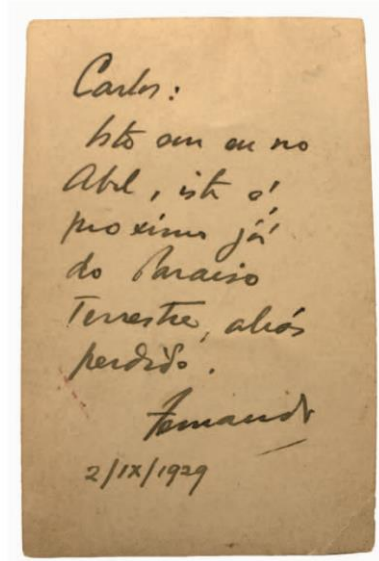 Carlos:
Isto sou eu no
Abel, isto é,
proximo já
do Paraiso
Terrestre, aliás
perdido.
Fernando
2/IX/1929